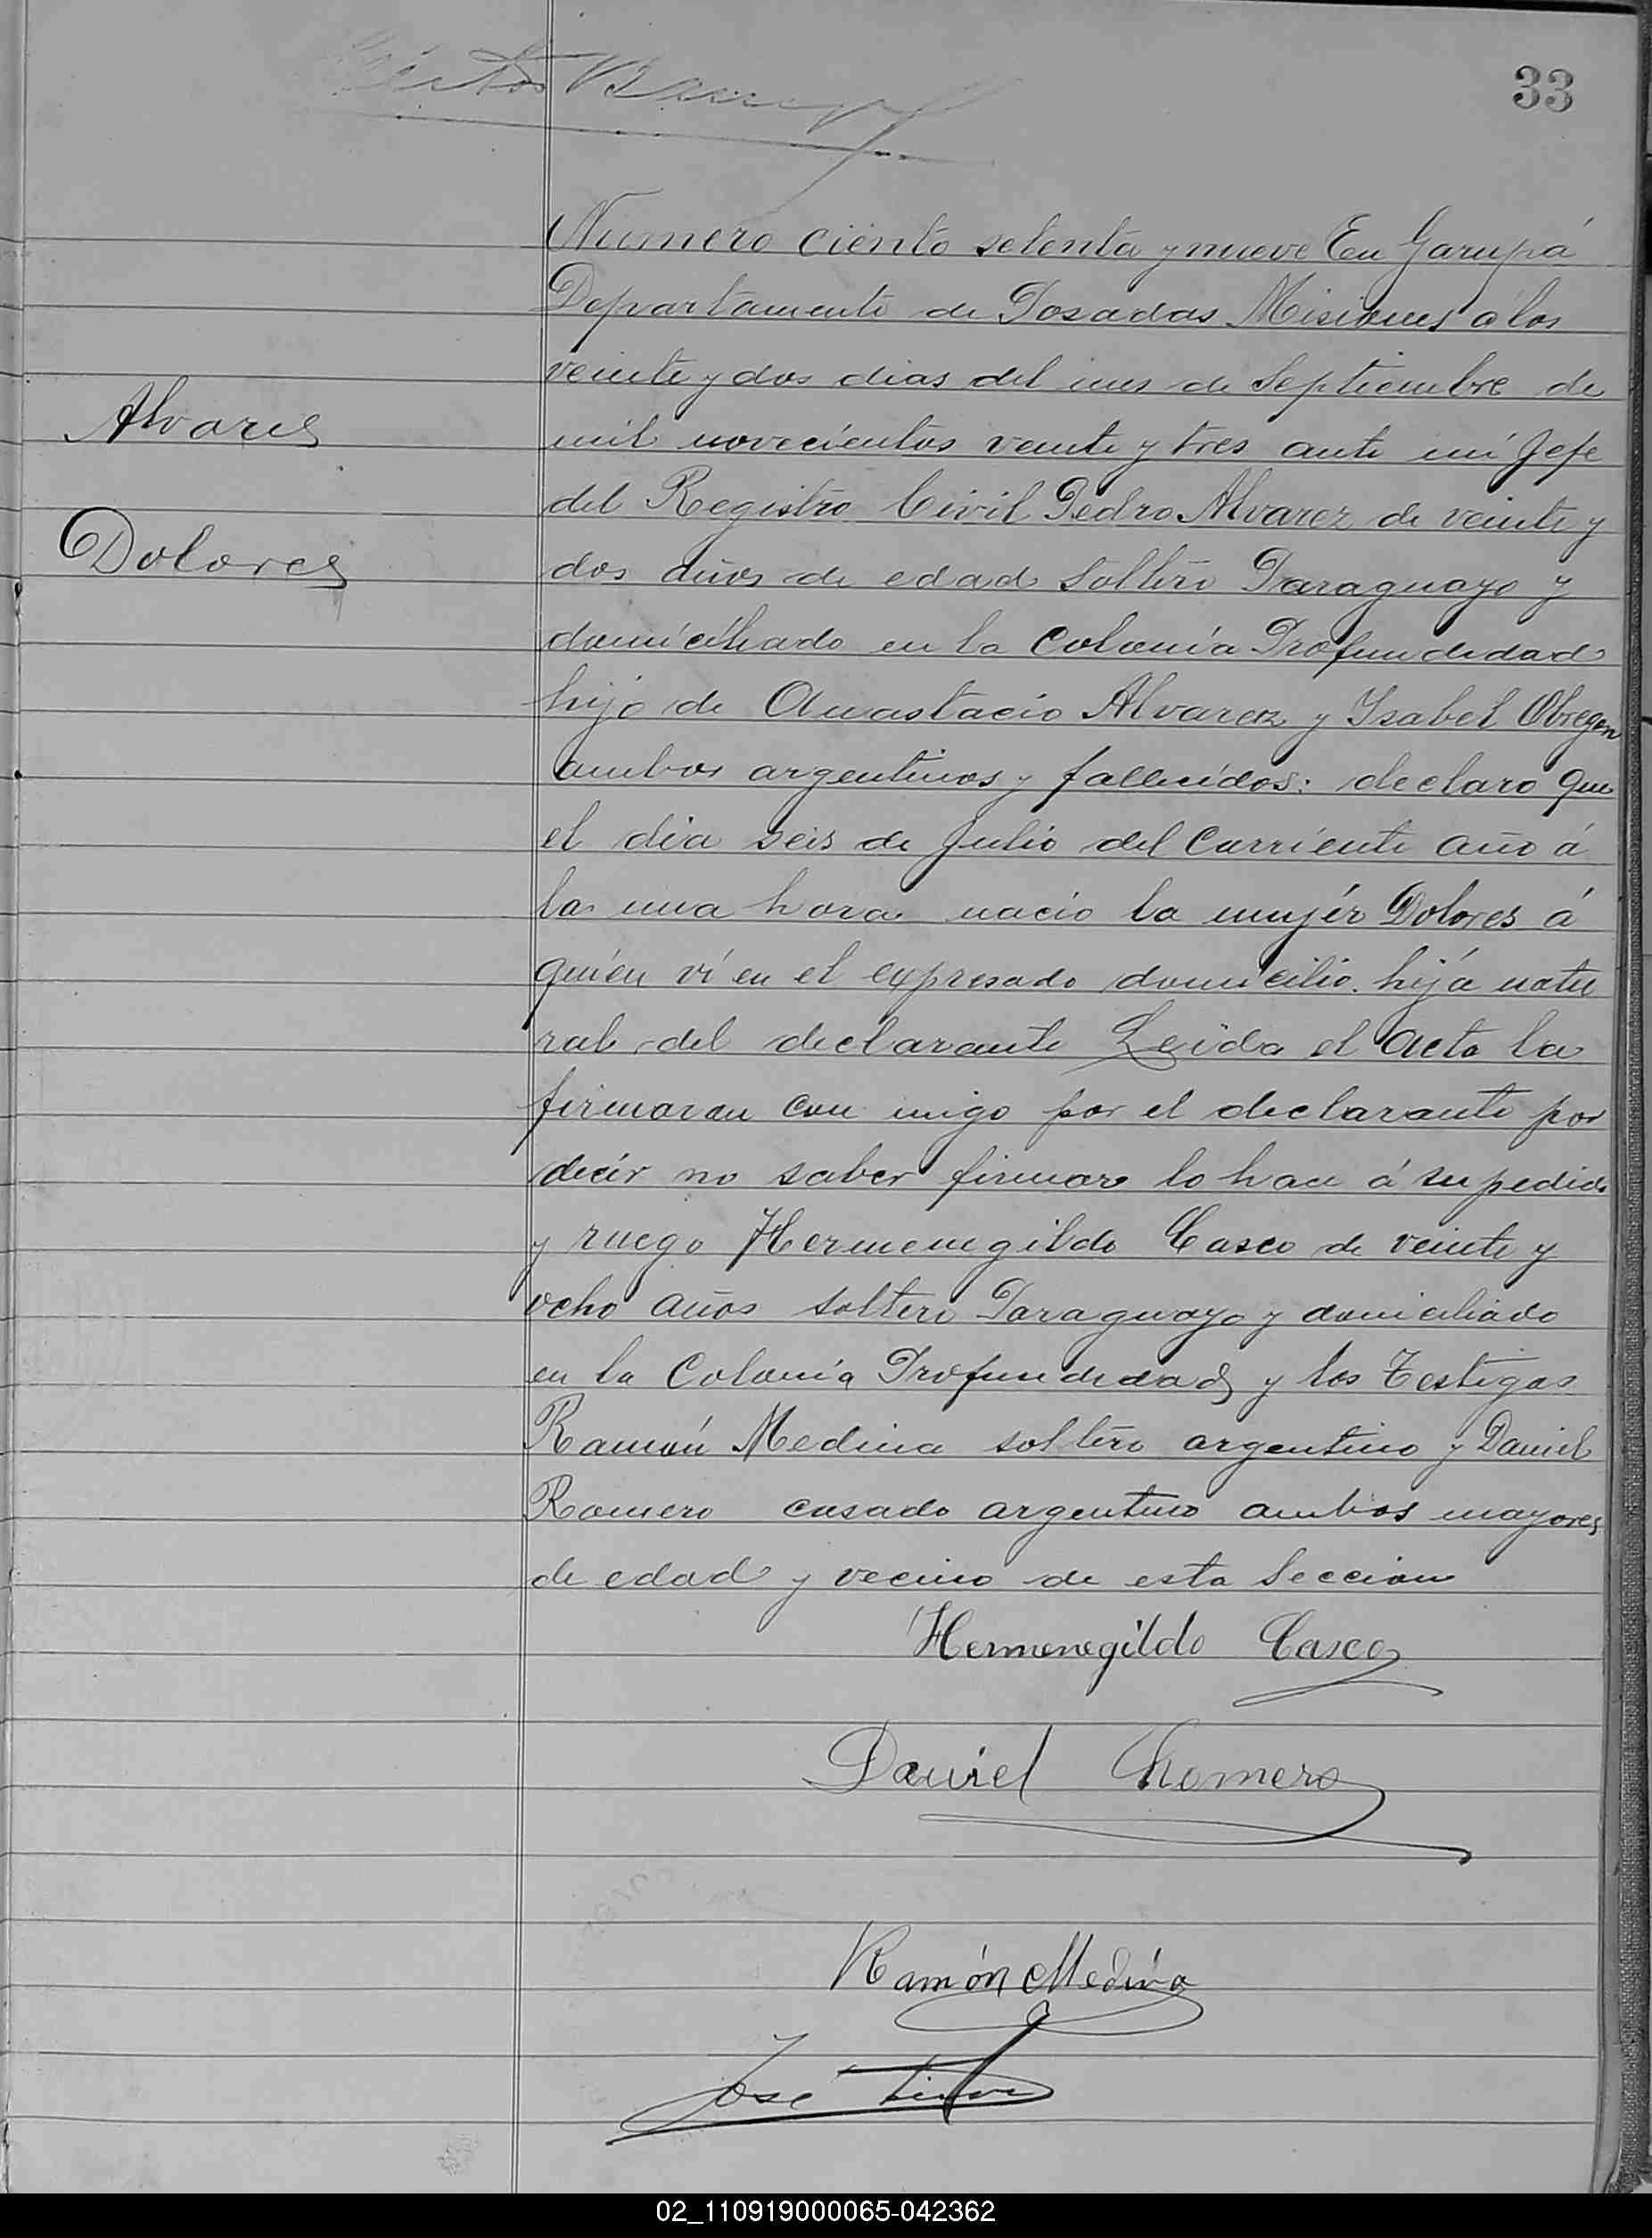 33
Numero ciento setenta y nueve En Garupá
Departamento de Posadas Misiones á los
veinte y dos dias del mes de Septiembre de
Alvares
mil novecientos veinte y tres ante mi Jefe
del Registro Civil Pedro Alvarez de veinte y
Dolores
dos años de edad soltero Paraguayo y
domicihado en la Colonia Profundidad
hijo de Anastacio Alvarez y Ysabel Obregon
ambos argentinos y fallecidos: declaro que
el dia seis de Julio del corriente año á
la una hora nacio la mujér Dolores á
quién ví en el expresado domicilio. hija natu
ral del declarante Leida el acta la
firmaron con migo por el declarante por
decir no saber firmar lo hace á su pedido
y ruego Hermenegildo Casco de veinte y
ocho años soltero Paraguayo y domiciliado
en la Colonia Profundidad y los Testigos
Ramón Medina soltero argentino y Daniel
Romero casado argentino ambos mayores
de edad y vecino de esta Seccion
Hermenegildo Casco
Daniel Romero
Ramón Medina
José
02_110919000065-042362